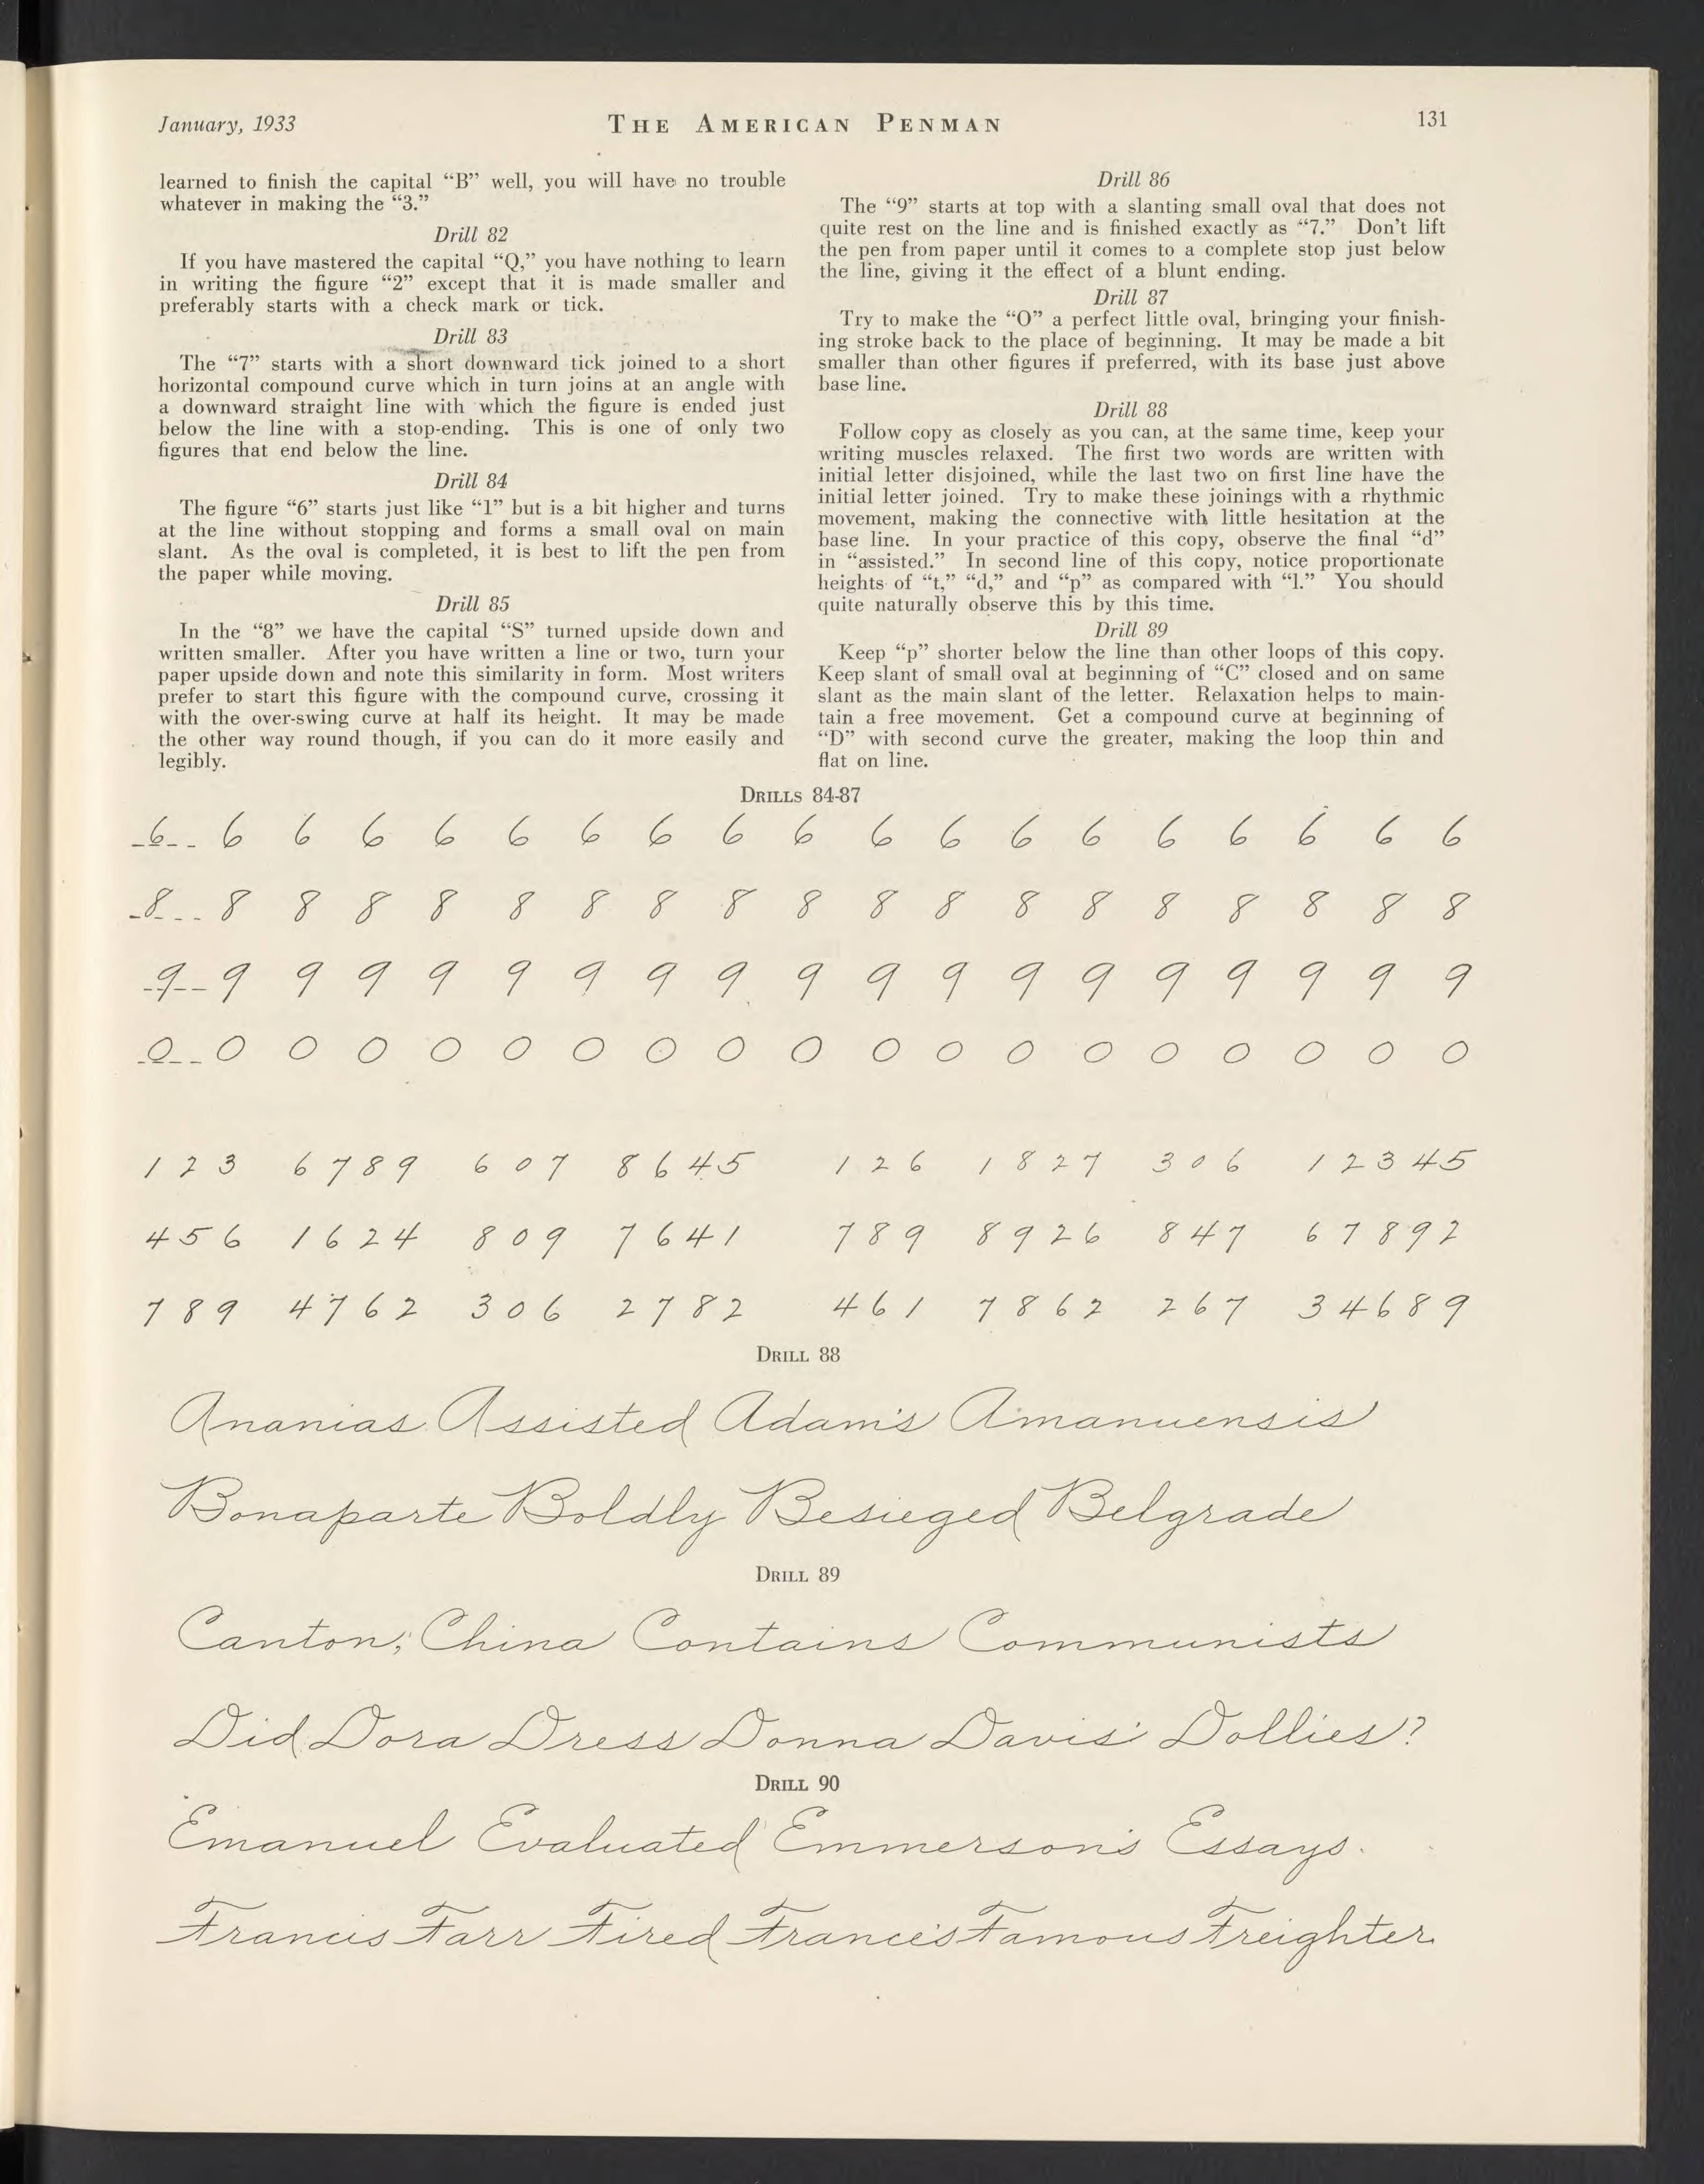 January, 1933
THE AMERICAN PENMAN
131
learned to finish the capital “B” well, you will have no trouble
whatever in making the “3.”
Drill 82
If you have mastered the capital “Q,” you have nothing to learn
in writing the figure “2” except that it is made smaller and
preferably starts with a check mark or tick.
Drill 83
The “7” starts with a short downward tick joined to a short
horizontal compound curve which in turn joins at an angle with
a downward straight line with which the figure is ended just
below the line with a stop-ending. This is one of only two
figures that end below the line.
Drill 84
The figure “6” starts just like “1” but is a bit higher and turns
at the line without stopping and forms a small oval on main
slant. As the oval is completed, it is best to lift the pen from
the paper while moving.
Drill 85
In the “8” we have the capital “S” turned upside down and
written smaller. After you have written a line or two, turn your
paper upside down and note this similarity in form. Most writers
prefer to start this figure with the compound curve, crossing it
with the over-swing curve at half its height. It may be made
the other way round though, if you can do it more easily and
legibly.
Drill 86
The “9” starts at top with a slanting small oval that does not
quite rest on the line and is finished exactly as “7.” Don’t lift
the pen from paper until it comes to a complete stop just below
the line, giving it the effect of a blunt ending.
Drill 87
Try to make the “O” a perfect little oval, bringing your finish-
ing stroke back to the place of beginning. It may be made a bit
smaller than other figures if preferred, with its base just above
base line.
Drill 88
Follow copy as closely as you can, at the same time, keep your
writing muscles relaxed. The first two words are written with
initial letter disjoined, while the last two on first line have the
initial letter joined. Try to make these joinings with a rhythmic
movement, making the connective with little hesitation at the
base line. In your practice of this copy, observe the final “d”
in “assisted.” In second line of this copy, notice proportionate
heights of “t,” “d,” and “p” as compared with “l.” You should
quite naturally observe this by this time.
Drill 89
Keep “p” shorter below the line than other loops of this copy.
Keep slant of small oval at beginning of “C” closed and on same
slant as the main slant of the letter. Relaxation helps to main-
tain a free movement. Get a compound curve at beginning of
“D” with second curve the greater, making the loop thin and
flat on line.
DRILLS 84-87
6 6 6 6 6 6 6 6 6 6 6 6 6 6 6 6 6 6 6
8 8 8 8 8 8 8 8 8 8 8 8 8 8 8 8 8 8 8
9 9 9 9 9 9 9 9 9 9 9 9 9 9 9 9 9 9 9
0 0 0 0 0 0 0 0 0 0 0 0 0 0 0 0 0 0 0
1 2 3 6 7 8 9 6 0 7 8 6 4 5 1 2 6 1 8 2 7 3 0 6 1 2 3 4 5
4 5 6 1 6 2 4 8 0 9 7 6 4 1 7 8 9 8 9 2 6 8 4 7 6 7 8 9 2
7 8 9 4 7 6 2 3 0 6 2 7 8 2 4 6 1 7 8 6 2 2 6 7 3 4 6 8 9
DRILL 88
Ananias Assisted Adam's Amanuensis
Bonaparte Boldly Besieged Belgrade
DRILL 89
Canton, China Contains Communists
Did Dora Dress Donna Davis' Dollies?
DRILL 90
Emanuel Evaluated Emmerson's Essays.
Francis Farr Fired France's Famous Freighter.